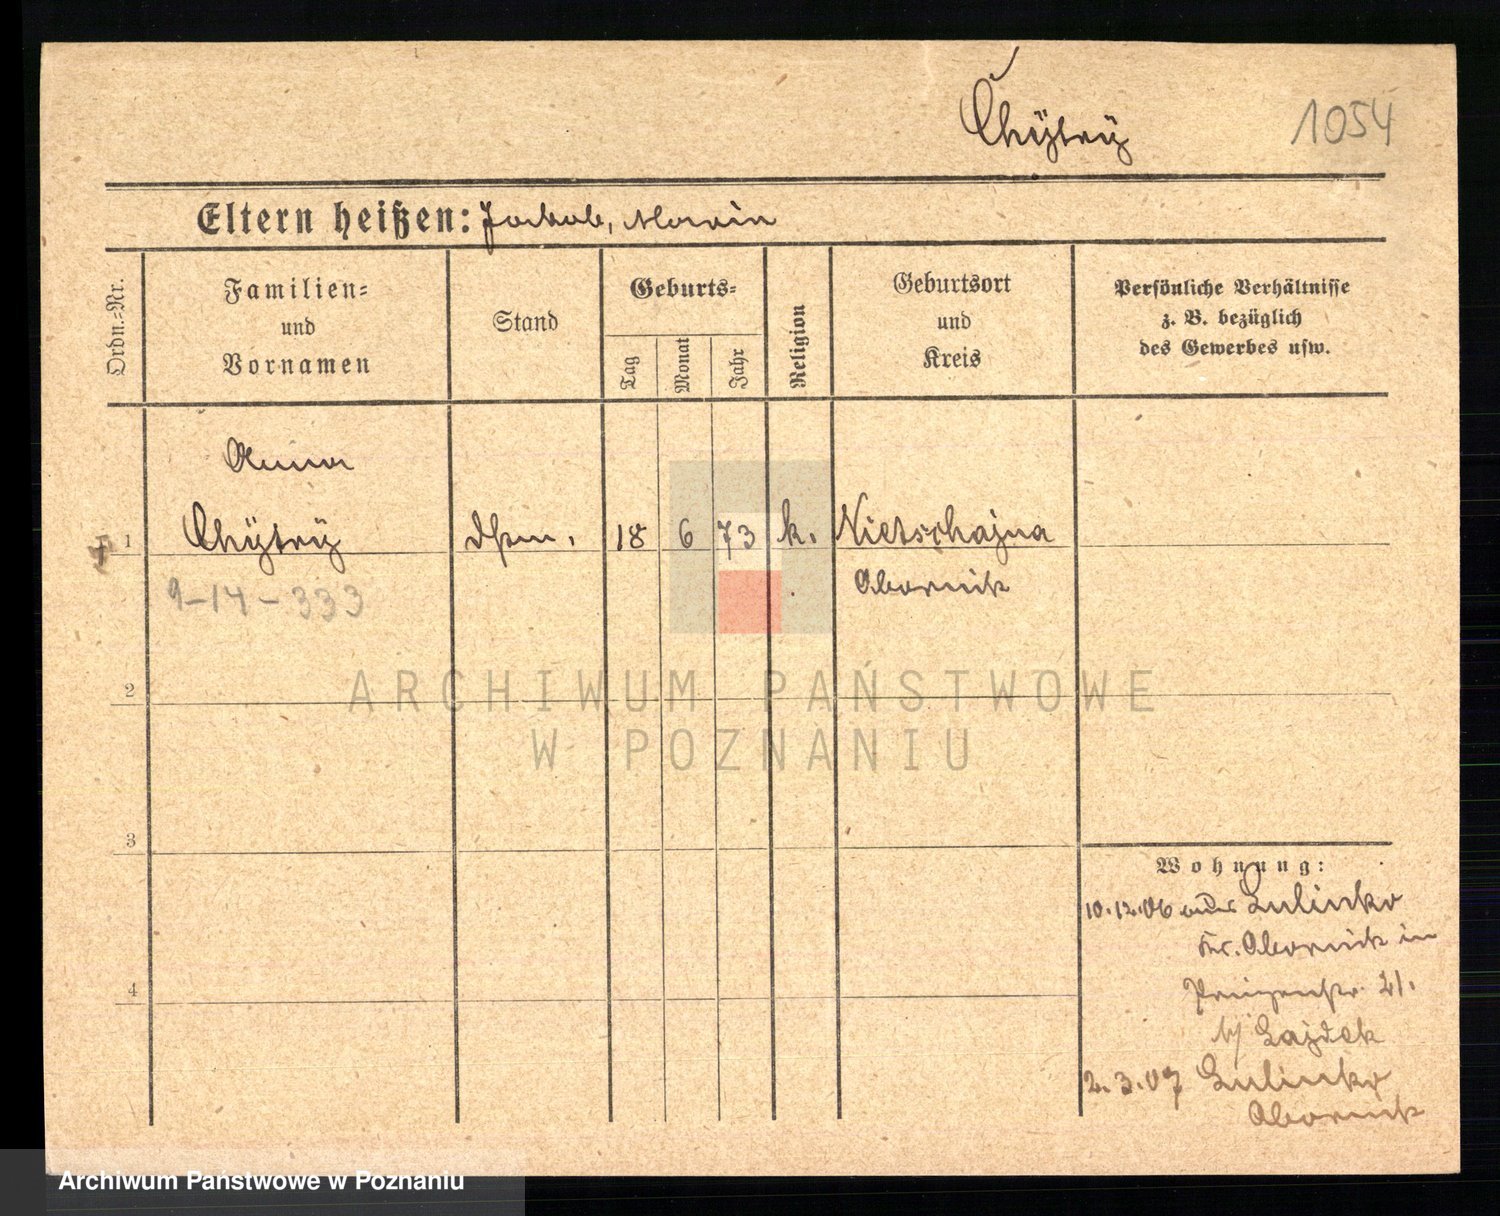 Chÿtrÿ
1054
Eltern heißen: Jakob, Maria
Ordn.-Nr.
Familien-
und
Vornamen
Stand
Geburts-
Tag
Monat
Jahr
Religion
Geburtsort
und
Kreis
Persönliche Verhältnisse
z. B. bezüglich
des Gewerbes usw.
Anna
1 Chÿtrÿ 18 6 73 k. Nietschajna
Obornik
9-14-333
2
ARCHIWUM PAŃSTWOWE
W POZNANIU
3
Wohnung:
10.12.06 aus Lulinko
Kr. Obornik in
Prinzenstr. 21.
b/ Gajdek
4
2.3.07 Lulinko
Obornik
Archiwum Państwowe w Poznaniu